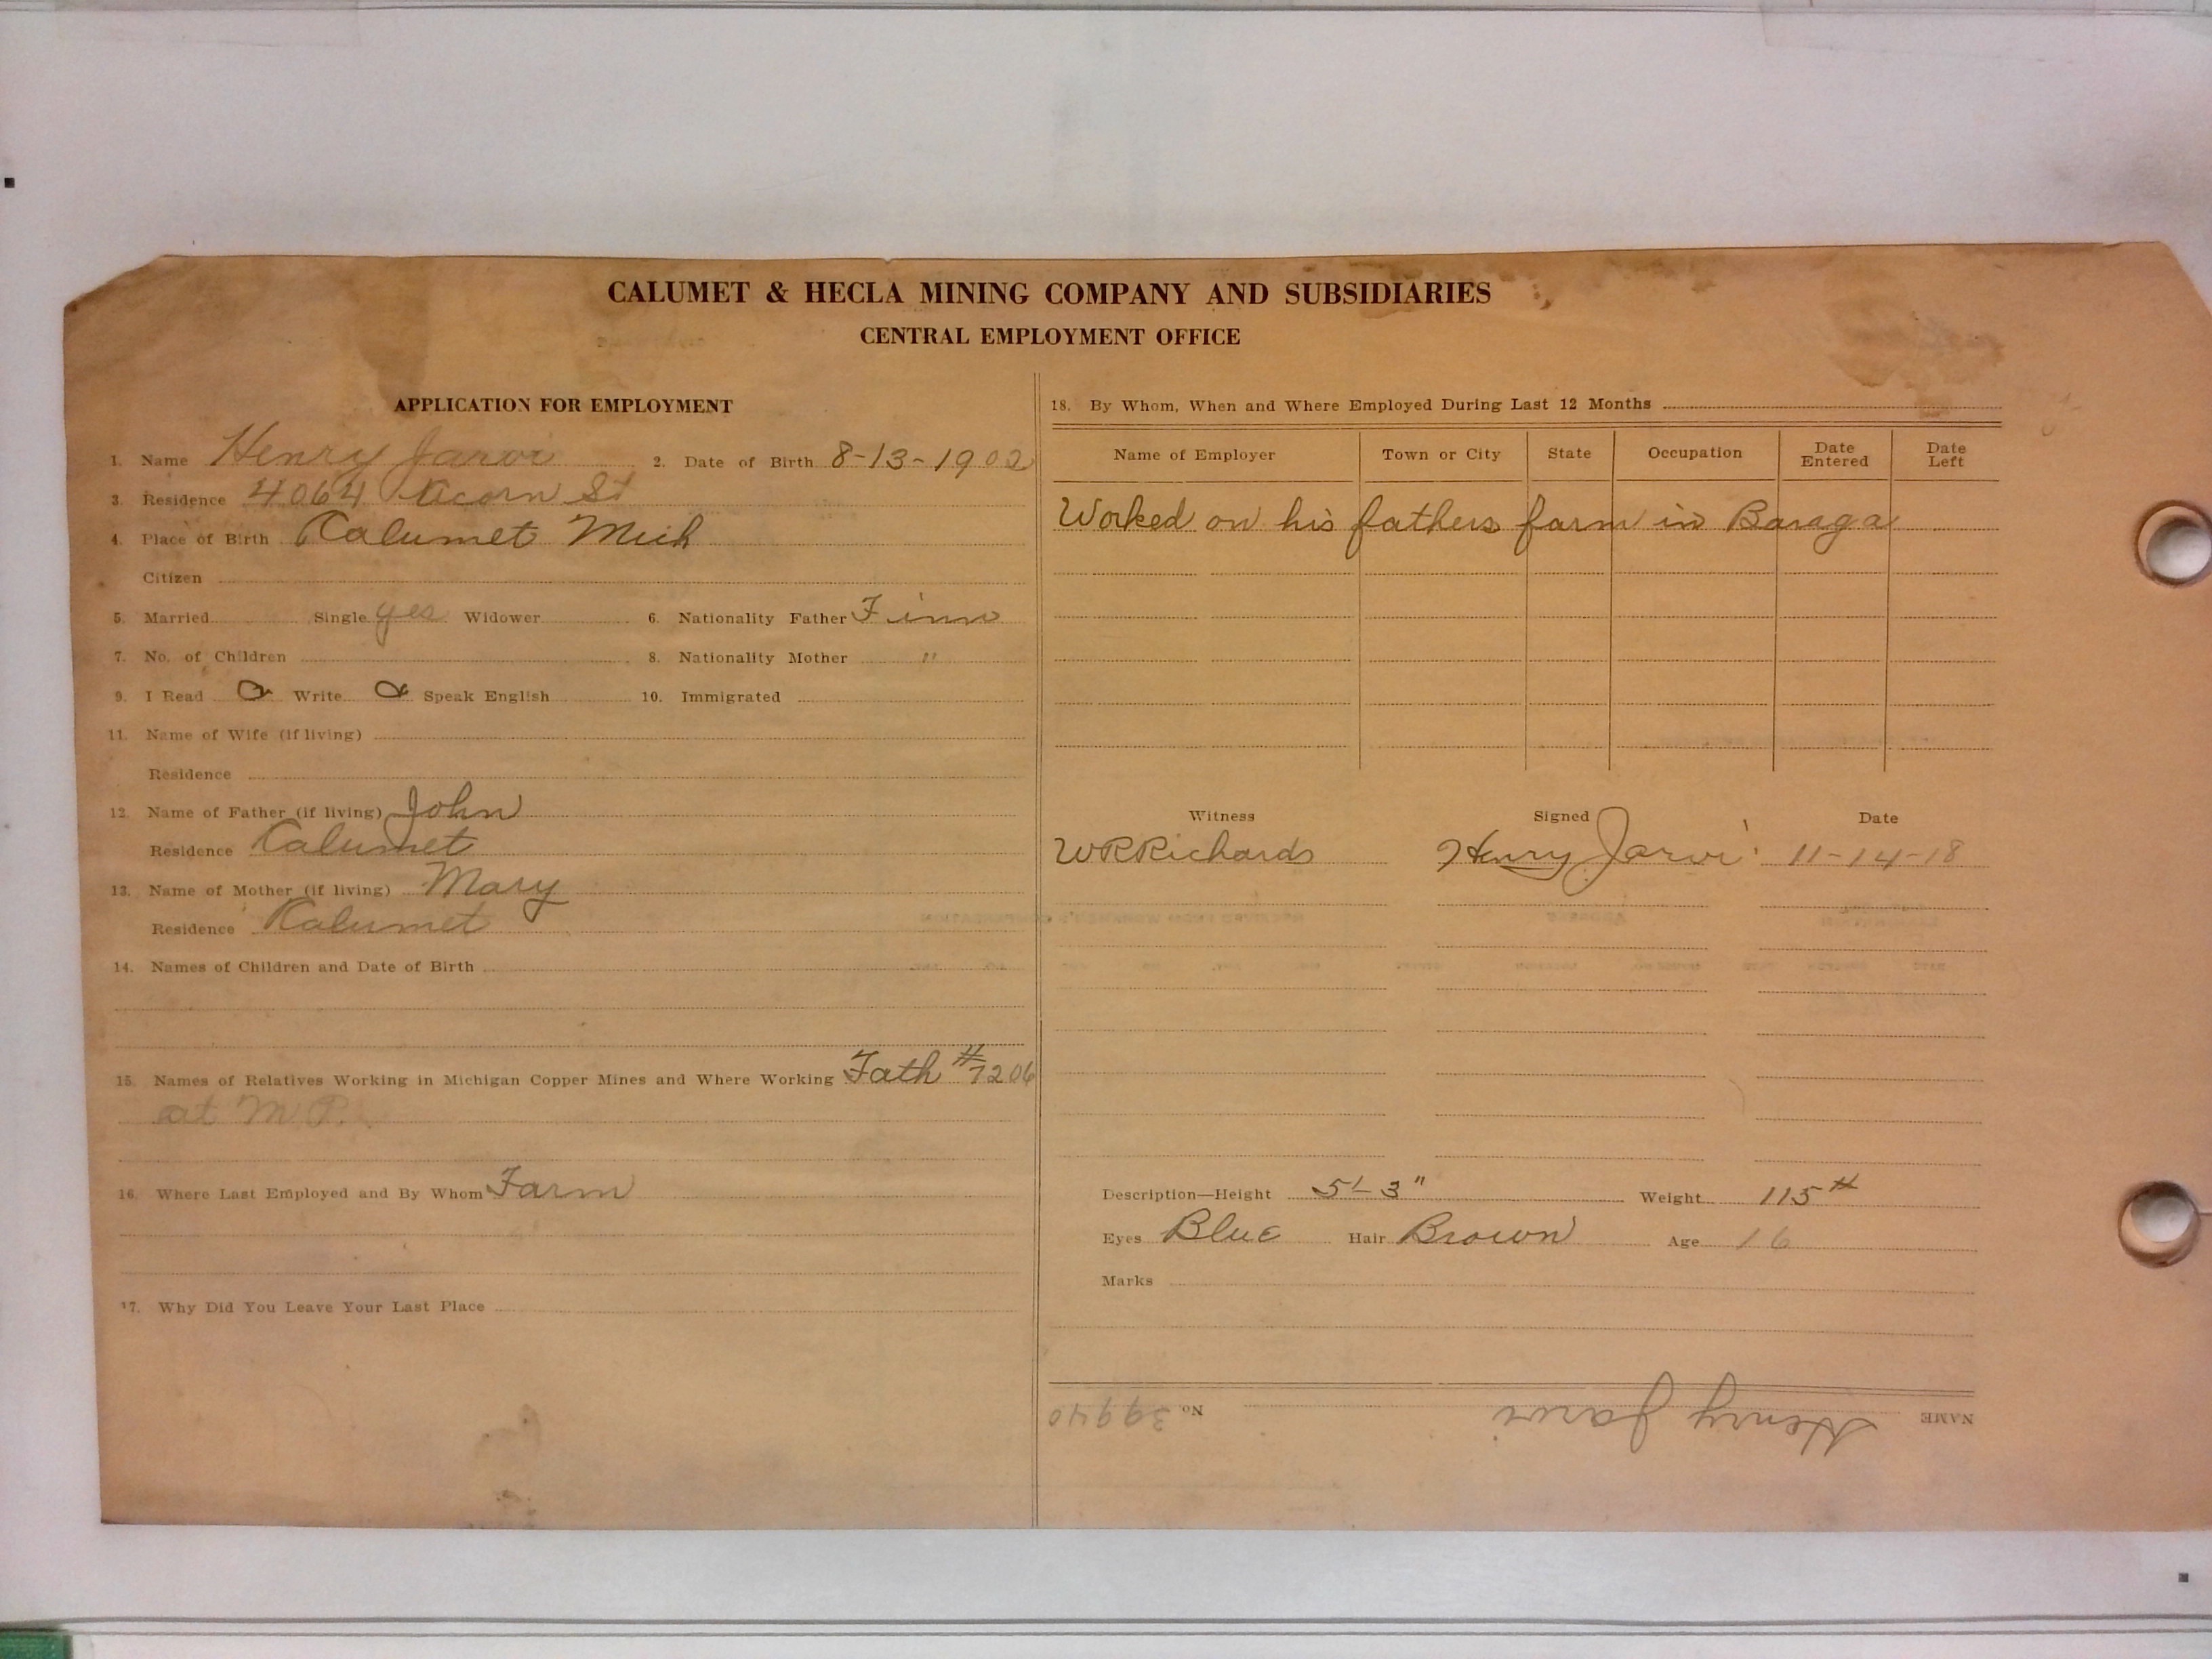 CALUMET & HECLA MINING COMPANY AND SUBSIDIARIES
CENTRAL EMPLOYMENT OFFICE
APPLICATION FOR EMPLOYMENT
1. Name Henry Jarvi 2. Date of Birth 8-13-1902
3. Residence 4064 Acorn St
4. Place of Birth Calumet Mich
Citizen
5. Married Single yes Widower 6. Nationality Father Finn
7. No. of Children 8. Nationality Mother "
9. I Read Write Speak English 10. Immigrated
11. Name of Wife (if living)
Residence
12. Name of Father (if living) John
Residence Calumet
13. Name of Mother (if living) Mary
Residence Calumet
14. Names of Children and Date of Birth
15. Names of Relatives Working in Michigan Copper Mines and Where Working Fath #7206
at M.P.
16. Where Last Employed and By Whom Farm
17. Why Did You Leave Your Last Place
18. By Whom, When and Where Employed During Last 12 Months
Name of Employer Town or City State Occupation Date Entered Date Left
Worked on his fathers farm in Baraga
Witness Signed Date
WRRichards Henry Jarvi 11-14-18
Description—Height 5'-3" Weight 115#
Eyes Blue Hair Brown Age 16
Marks
NAME Henry Jarvi No. 39940